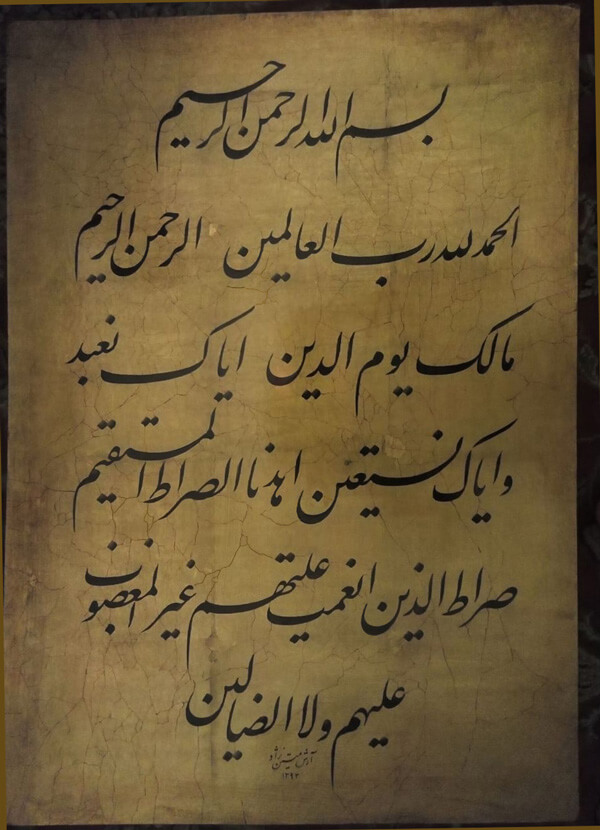 بسم الله الرحمن الرحیم
الحمد لله رب العالمین الرحمن الرحیم
مالک یوم الدین ایاک نعبد
و ایاک نستعین اهدنا الصراط المستقیم
صراط الذین انعمت علیهم غیر المغضوب
علیهم ولا الضالین
آرش
۱۳۹۳